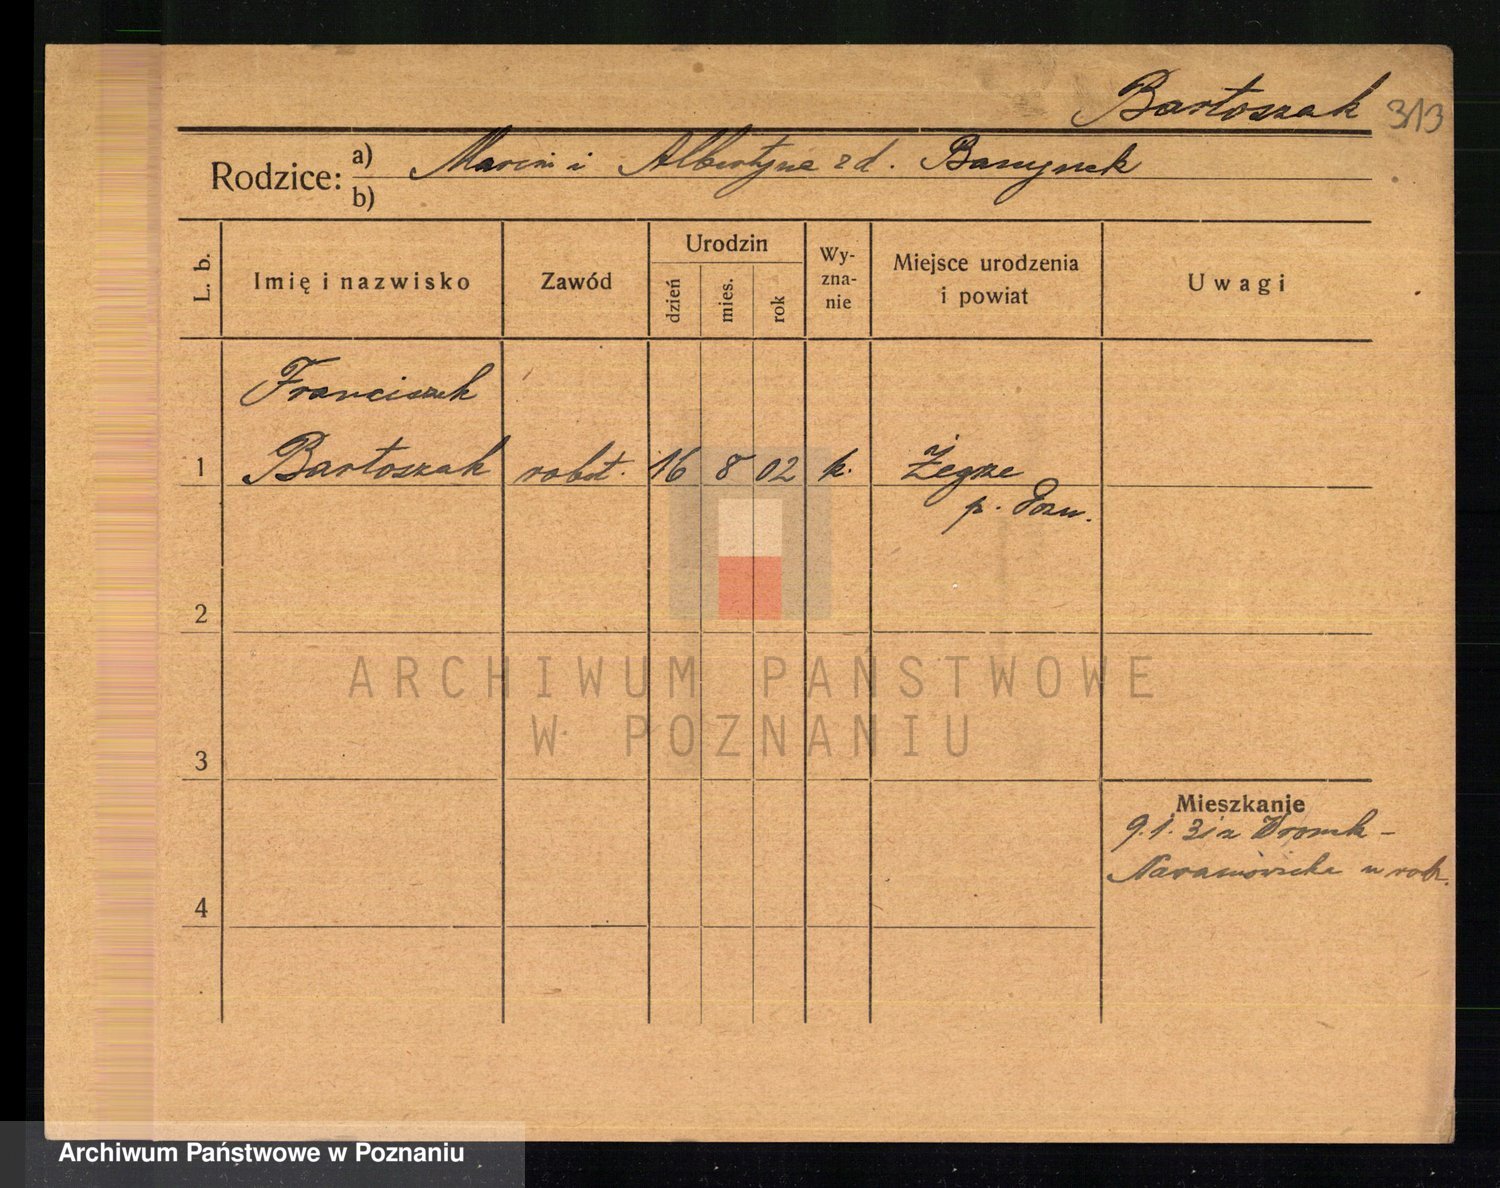 Bartoszak 313
Rodzice:
a) Marcin i Albertyna zd.
b)
L. b.
Imię i nazwisko
Zawód
Urodzin
dzień
mies.
rok
Wy-
zna-
nie
Miejsce urodzenia
i powiat
Uwagi
Franciszek
1 Bartoszak robot. 16 8 02 k. Żegrze
p. Pozn.
2
3
4
Mieszkanie
9.1.31 z
Naramowicka u rodz.
ARCHIWUM PAŃSTWOWE
W POZNANIU
Archiwum Państwowe w Poznaniu